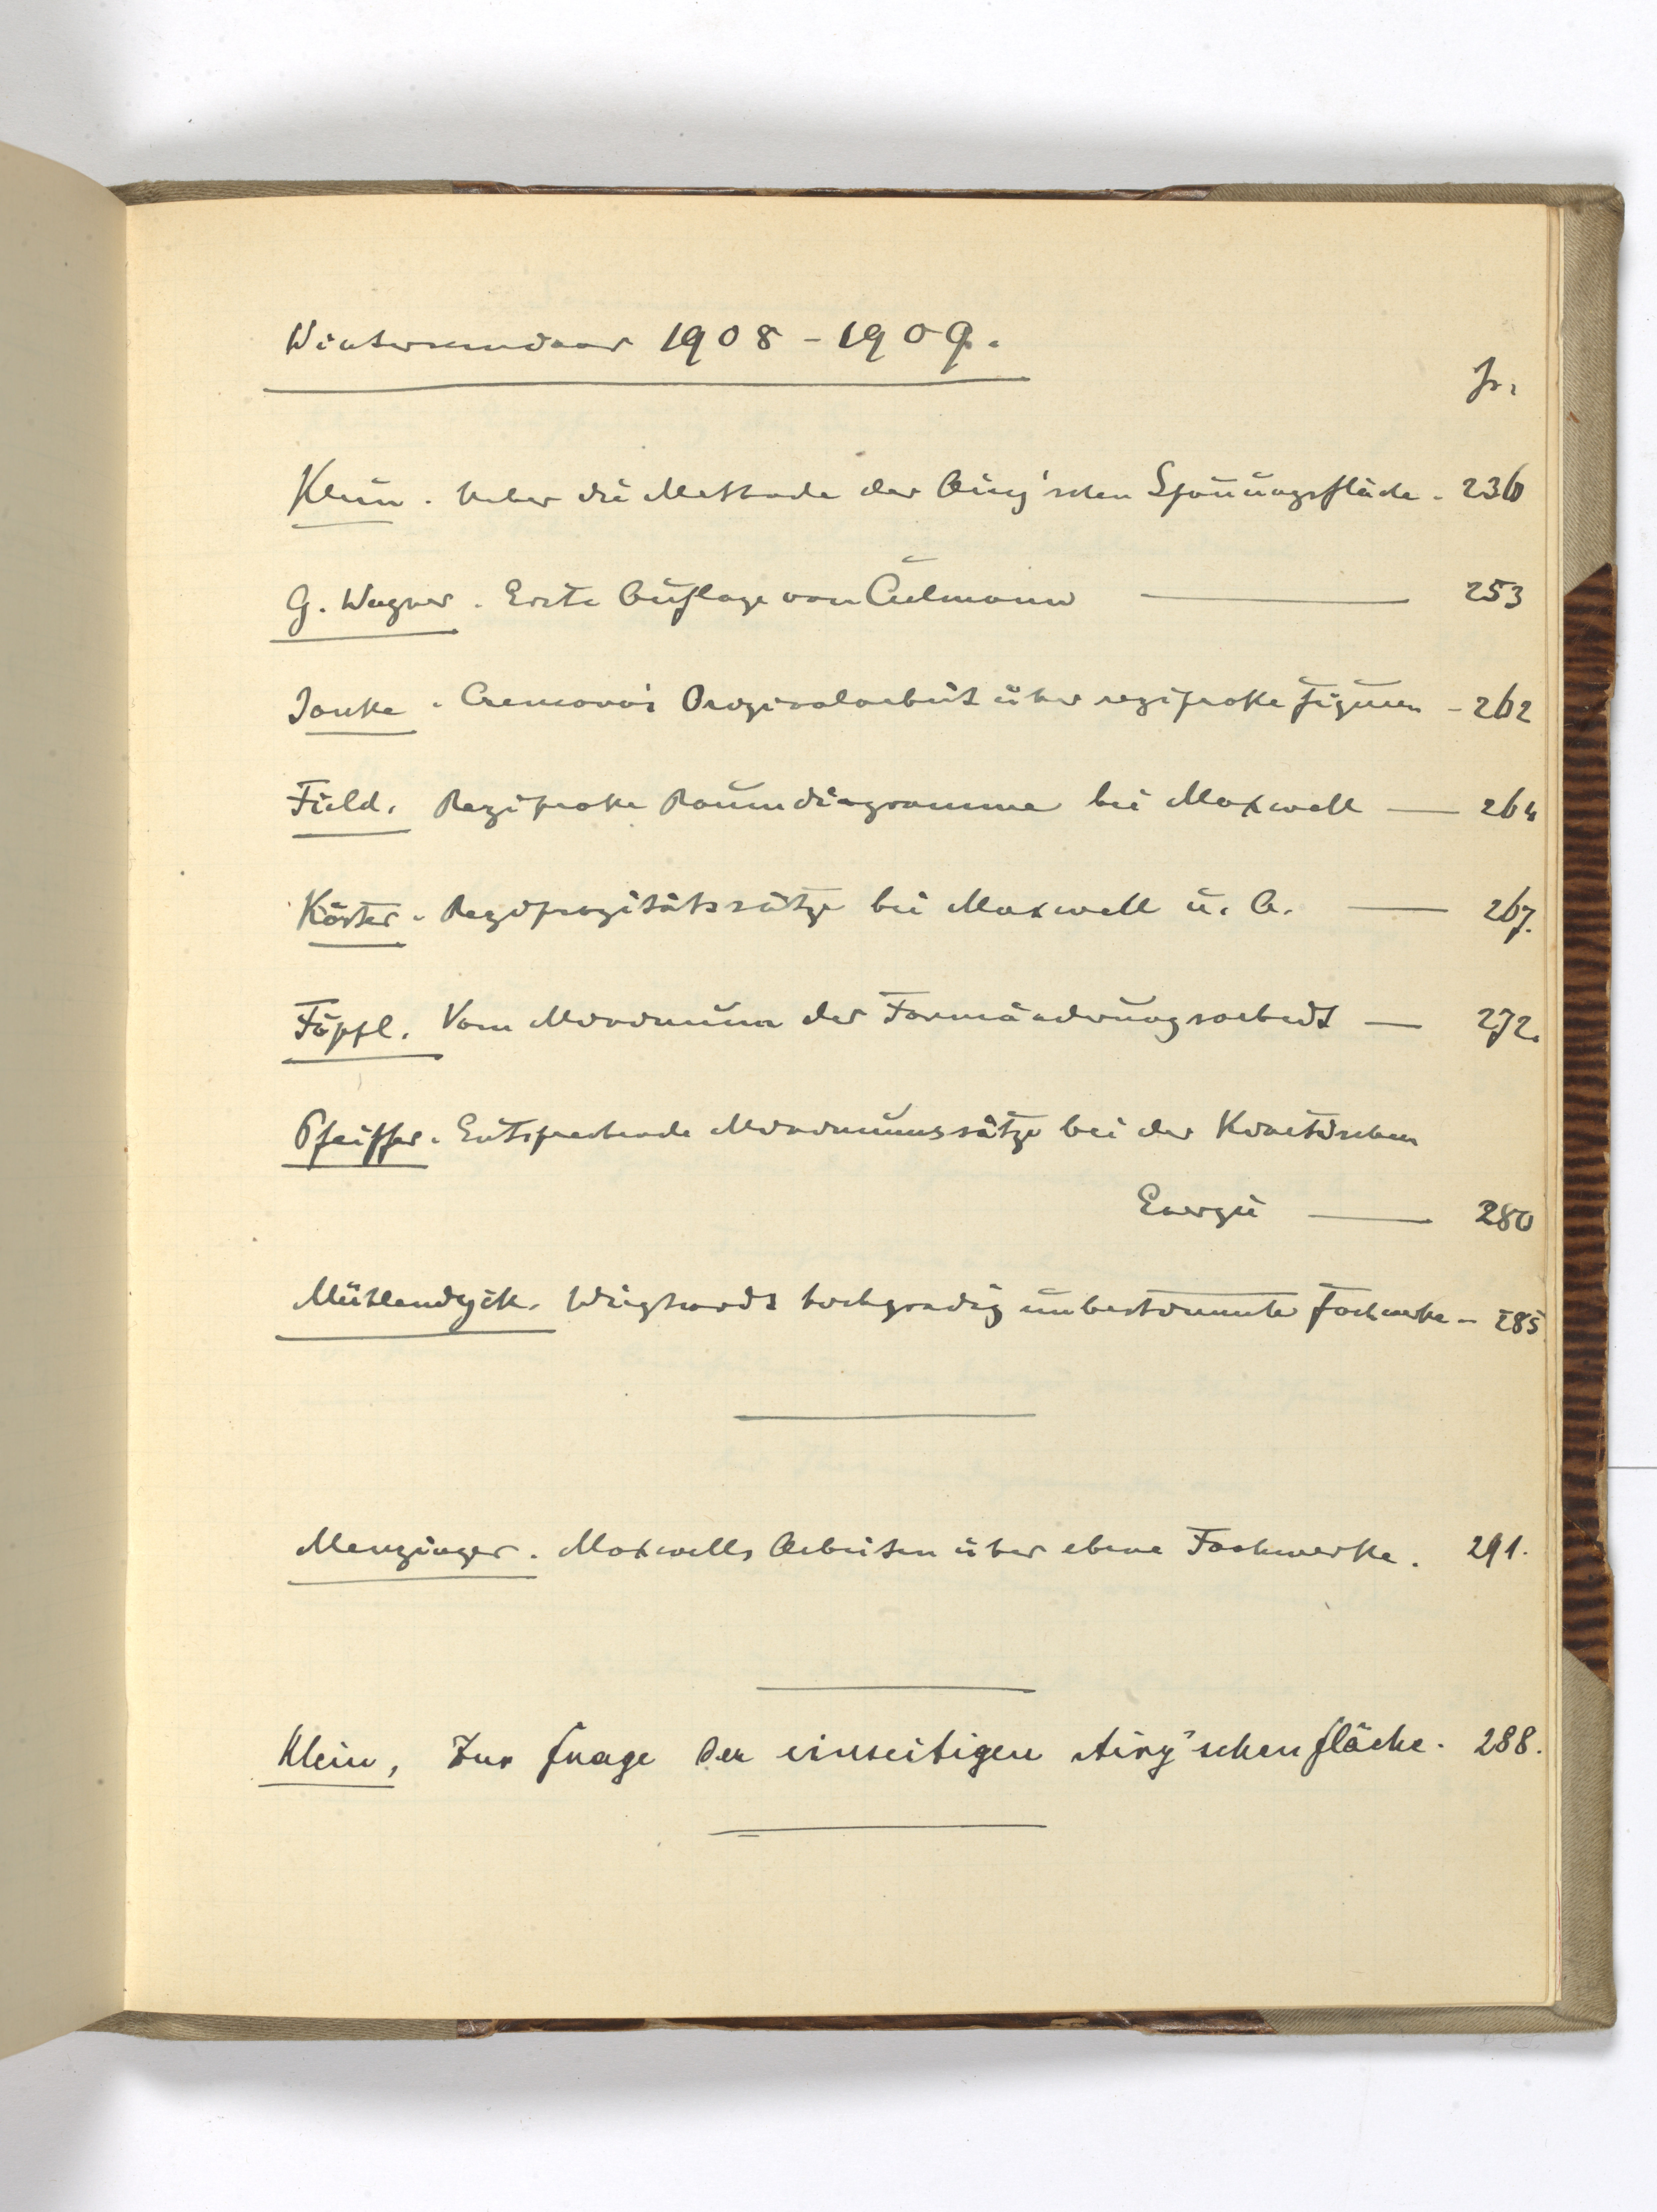 Winterseminar 1908 - 1909.
p.
Klein. Ueber die Methode der Airy'schen Spannungsfläche. 236
G. Wagner. Erste Auflage von Culmann — 253
Janke. Cremona's Originalarbeit über reziproke Figuren - 262
Field. Reziproke Raumdiagramme bei Maxwell — 264
Köster. Reziprozitätssätze bei Maxwell u. A. — 267.
Föppl. Vom Minimum der Formänderungsarbeit — 272.
Pfeiffer. Entsprechende Minimumssätze bei der Kinetischen
Energie — 280
Mühlendyck. Wieghardts hochgradig unbestimmte Fachwerke - 285
Menzinger. Maxwells Arbeiten über ebene Fachwerke. 291.
Klein, Zur Frage der einseitigen Airy'schen Fläche. 288.